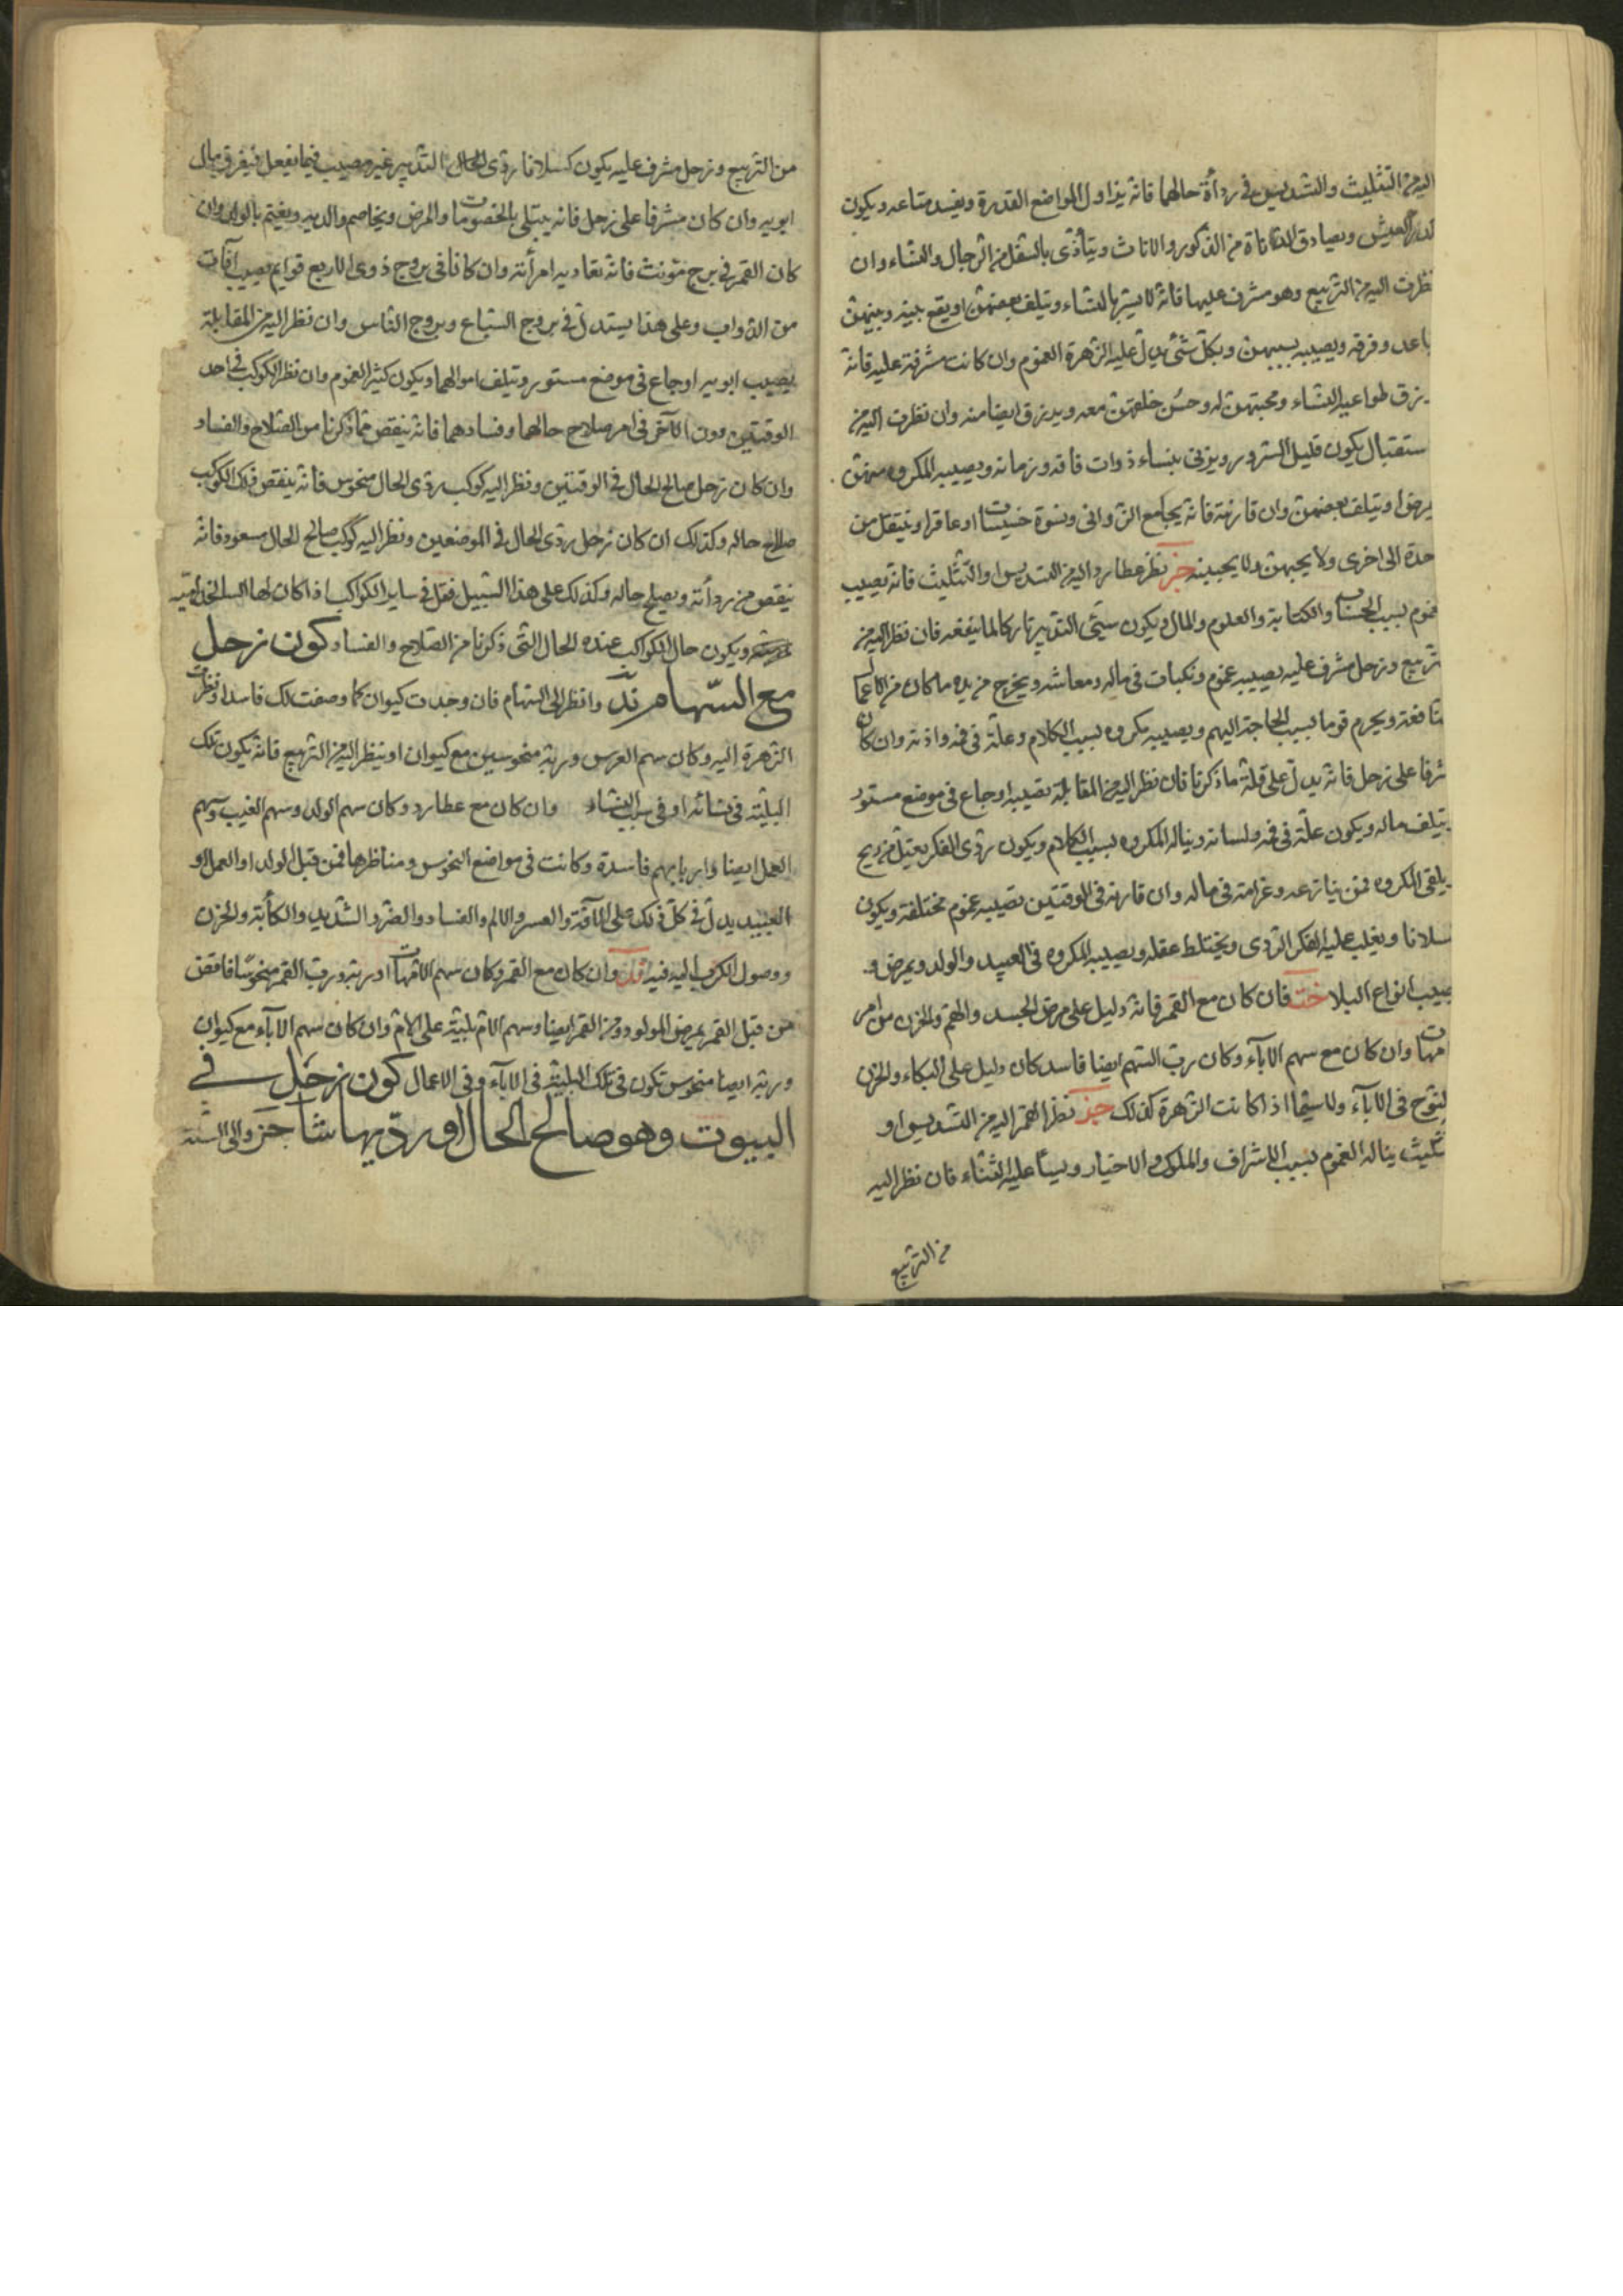 اليه من التثليث والتسديس في رداءة حالهما فانه يزاول المواضع القذرة ويفسد متاعه ويكون
العيش ويصادق الدناة من الذكور والاناث ويتأذى بالسفل من الرجال والنساء وان
نظرت اليه من التربيع وهو مشرف عليها فانه لا يسر بالنساء ويتلف بعضهن او يقع بينه وبينهن
باعد وفرقه ويصيبه بسببهن وبكل شئ يدل عليه الزهرة الغموم وان كانت مشرفة عليه فانه
يرزق طواعية النساء ومحبتهن له وحسن خلقهن معه ويرزق ايضا منه وان نظرت اليه من
ستقبال يكون قليل السرور ويزني بنساء ذوات فاقه وزمانه ويصيبه المكروه منهن
يرض او يتلف بعضهن وان قارنته فانه يجامع الزواني ونسوة خسيسات او عاقرا وينتقل من
حدة الى اخرى ولا يحبهن ولا يحببنه نظر عطارد اليه من التسديس او التثليث فانه يصيب
غموم بسبب الحسنات والكتابة والعلوم والمال ويكون سيئ التدبير تاركا لما ينفعه فان نظر اليه من
تربيع وزحل مشرف عليه يصيبه غموم ونكبات في ماله ومعاشه ويخرج من يده ما كان من الاعمال
نافعة ويحرم قوما بسبب الحاجة اليهم ويصيبه مكروه بسبب الكلام وعلة في فمه واذنه وان كان
شرفا على زحل فانه يدل على قلة ما ذكرنا فان نظر اليه من المقابلة تصيبه اوجاع في موضع مستور
يتلف ماله ويكون علة في فمه ولسانه ويناله المكروه بسبب الكلام ويكون ردى الفكر يعتل من ريح
يلقى المكروه ممن ينازعه وغرامة في ماله وان قارنه في الوقتين تصيبه غموم مختلفة ويكون
سلانا ويغلب عليه الفكر الردى ويختلط عقله ويصيبه المكروه في العبيد والولد ويمرض و
صيب انواع البلا فان كان مع القمر فانه دليل على مرض الجسد والهم والحزن من امر
مهات وان كان مع سهم الاباء وكان رب السهم ايضا فاسد كان دليل على البكاء والحزن
لنوح في الاباء ولا سيما اذا كانت الزهرة كذلك نظر القمر اليه من التسديس او
تثليث يناله الغموم بسبب الاشراف والملوك والاخيار ويسأ عليه الثناء فان نظر اليه
من التربيع
من التربيع وزحل مشرف عليه يكون كسلانا ردى الحال التدبير غير مصيب فيما يفعل فيغرق مال
ابويه وان كان مشرفا على زحل فانه يبتلى بالخصومات والمرض ويخاصم والديه ويغتم بالولد وان
كان القمر في برج مؤنث فانه تعاديه امرأته وان كانا في بروج ذوى الاربع قوايم يصيب آفات
من الدواب وعلى هذا يستدل في بروج السباع وبروج الناس وان نظر اليه من المقابلة
يصيب ابويه اوجاع في موضع مستور ويتلف اموالهما ويكون كثير الغموم وان نظر الكوكب في احد
الوقتين دون الآخر في امر صلاح حالهما وفسادهما فانه ينقص مما ذكرنا من الصلاح والفساد
وان كان زحل صالح الحال في الوقتين ونظر اليه كوكب ردى الحال منحوس فانه ينقص ذلك الكوكب
صلاح حاله وكذلك ان كان زحل ردى الحال في الموضعين ونظر اليه كوكب صالح الحال مسعود فانه
ينقص من ردأته ويصلح حاله وكذلك على هذا السبيل فقل في ساير الكواكب اذا كان لها
ويكون حال الكواكب عنده الحال التى ذكرنا من الصلاح والفساد كون زحل
مع السهام وانظر الى السهام فان وجدت كيوان كما وصفت لك فاسدا ونظرت
الزهرة اليه وكان سهم العرس وربه منحوسين مع كيوان او ينظر اليه من التربيع فانه يكون تلك
البلية في نسائه او في سبب النساء وان كان مع عطارد وكان سهم الولد وسهم الغيب وسهم
العمل ايضا واربابهم فاسدة وكانت في مواضع النحوس ومناظرها فمن قبل الولد او العمل او
العبيد يدل في كل ذلك على الآفة والعسر والالم والفساد والضر والشديد والكأبة والحزن
ووصول الكرب اليه فيه وان كان مع القمر وكان سهم الامهات او ربه ورب القمر منحوسا فاقض
من قبل القمر بمرض المولود ومن القمر ايضا وسهم الام بلية على الام وان كان سهم الآباء مع كيوان
وربه ايضا منحوس تكون في تلك البلية في الآباء وفي الاعمال كون زحل في
البيوت وهو صالح الحال او رديها والى السنة